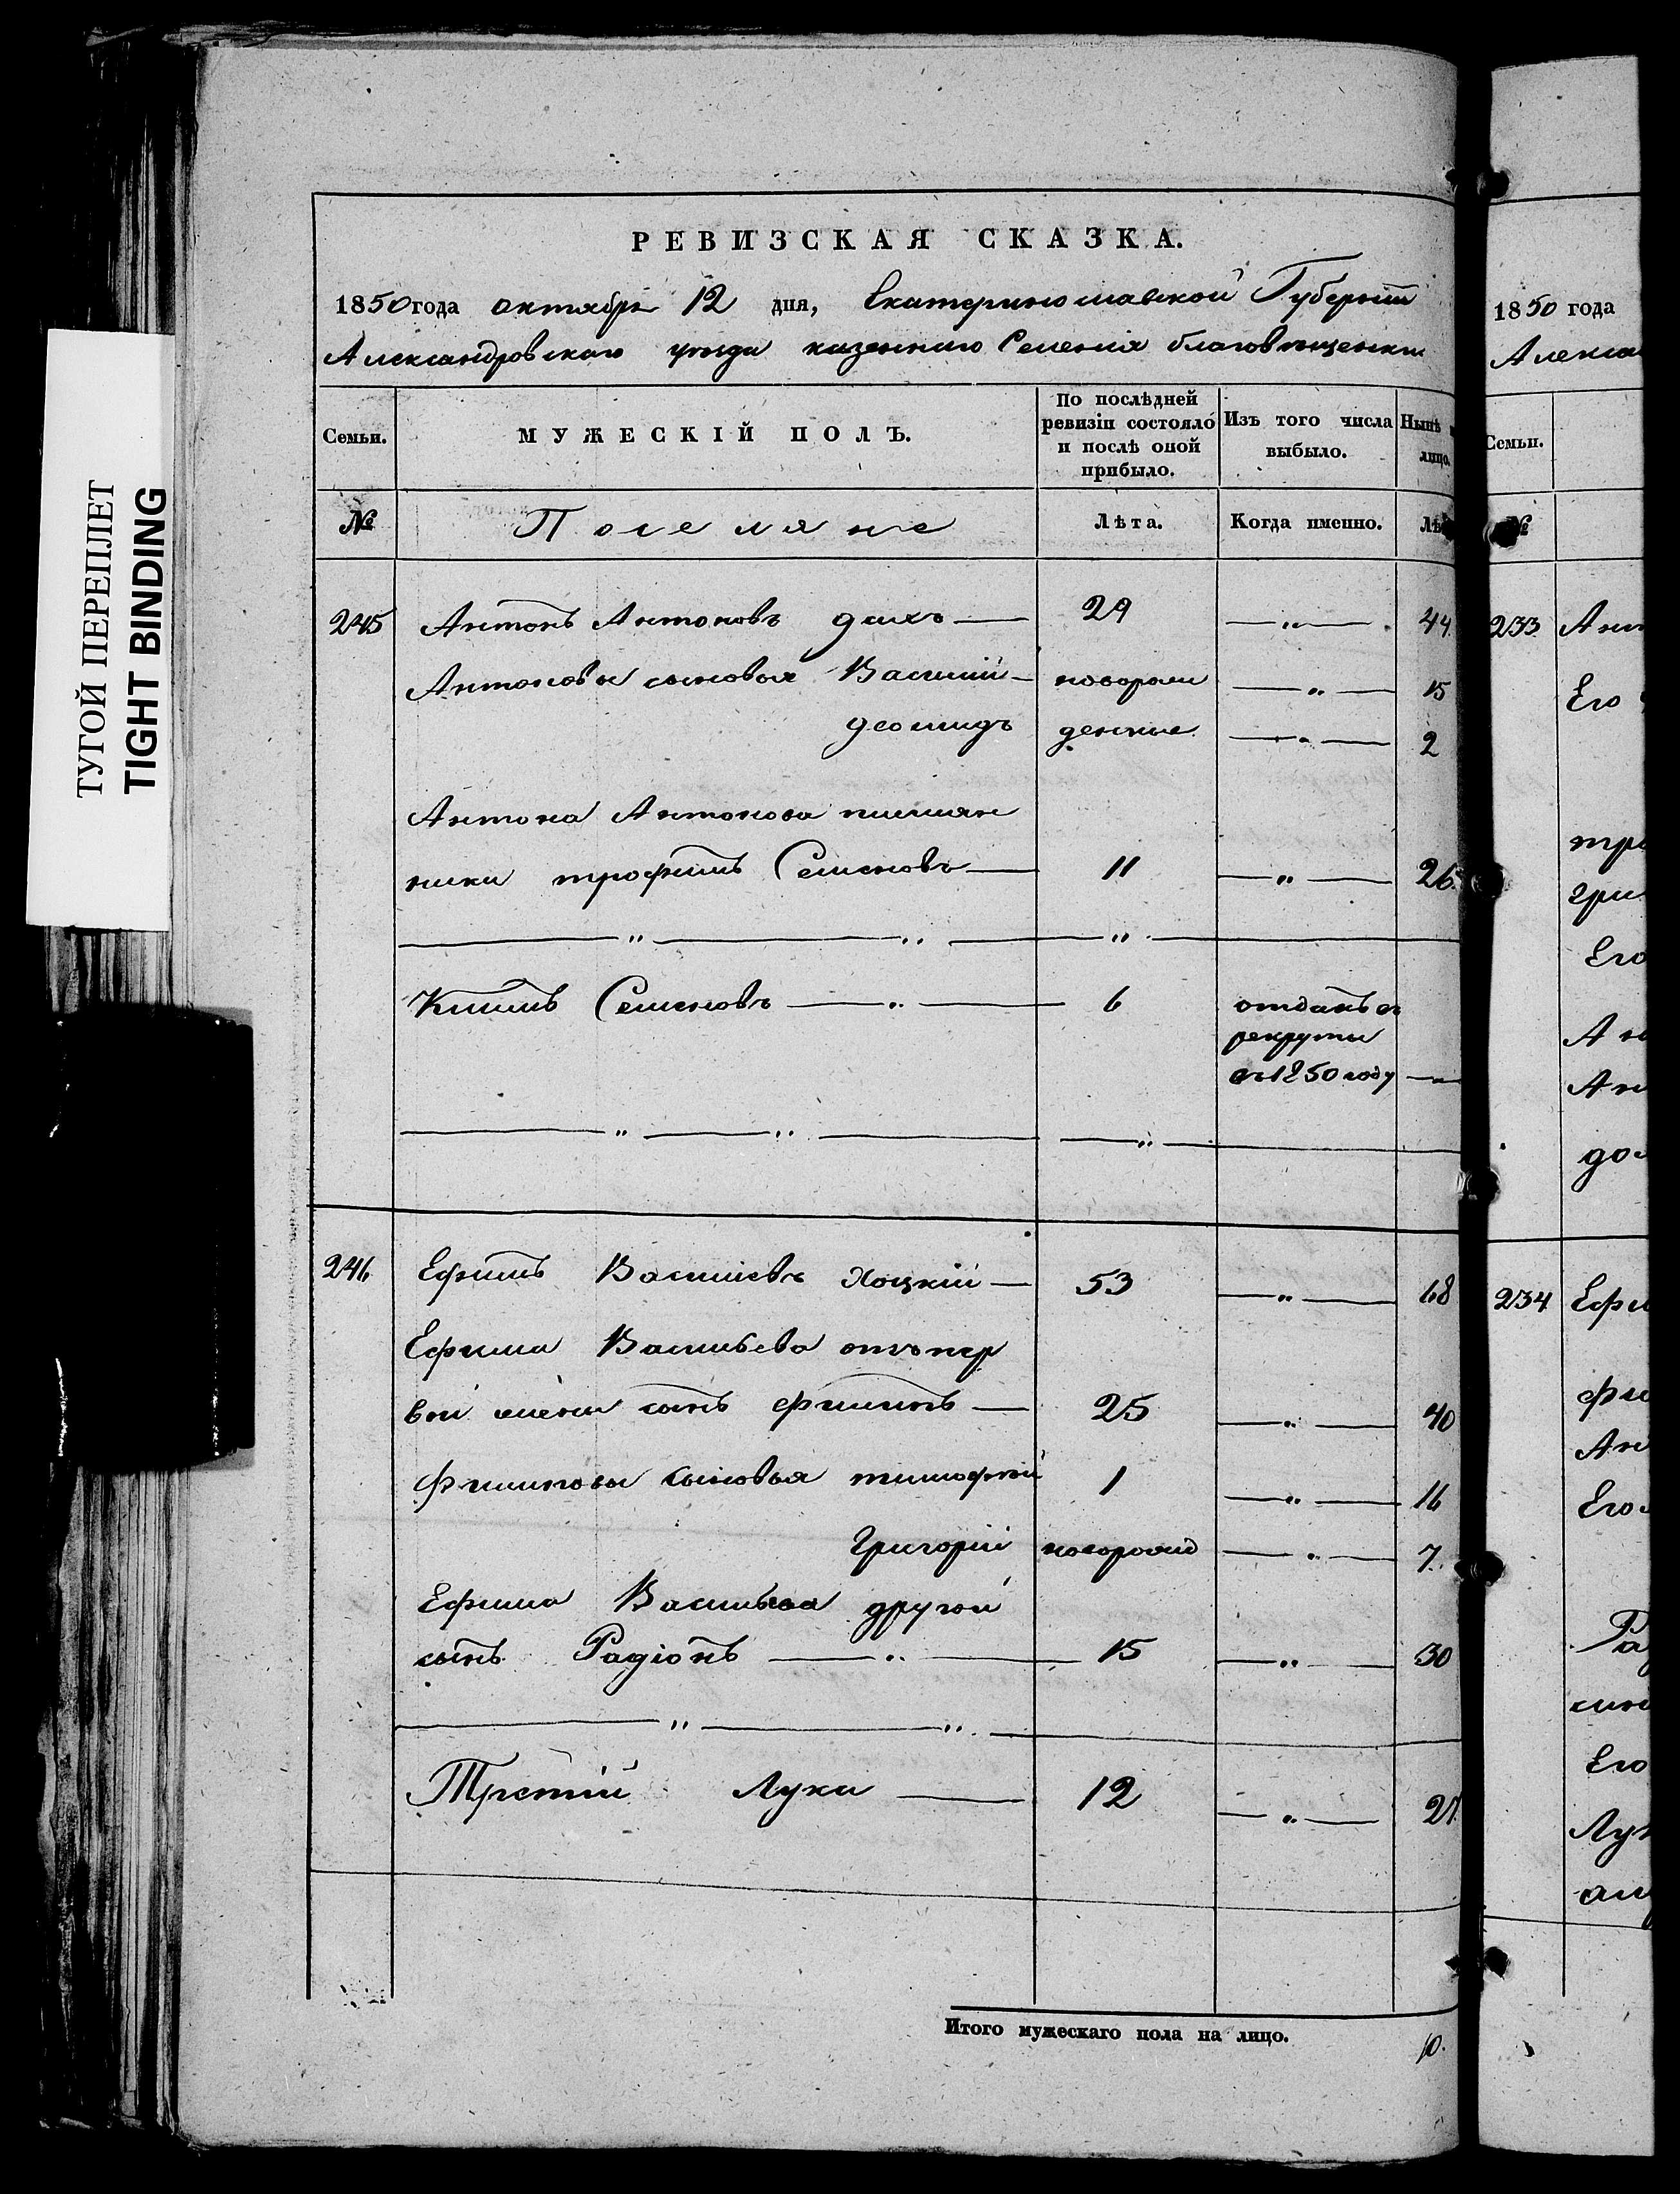 ТУГОЙ ПЕРЕПЛЕТ
TIGHT BINDING
РЕВИЗСКАЯ СКАЗКА.
1850 года октября 12 дня, Екатеринославской Губернии
Александровскаго уезда казеннаго Селения благовещенки
Семьи. МУЖЕСКІЙ ПОЛЪ. По послѣдней ревизіи состояло и послѣ оной прибыло. Изъ того числа выбыло. Нынѣ лицо.
№ Поселяне Лѣта. Когда именно. Лѣ
245 Антонъ Антоновъ — 29 — „ — 44
Антоновы сыновья Василий — новорож — „ — 15
деомидъ денные — „ — 2
Антона Антонова племян
ники трофимъ Семеновъ — 11 — „ — 26.
— „ — „ — „ —
Климъ Семеновъ — „ — 6 отданъ въ
рекруты
въ 1850 году —
— „ — „ — „ —
246 Ефимъ Василиевъ Хоцкій — 53 — „ — 68
Ефима Васильева отъ пер
вой жены сынъ филипъ — 25 — „ — 40
Филиповы сыновья тимофей 1 — „ — 16
Григорій новорожд — „ — 7.
Ефима Васильева другой
сынъ Радіонъ — „ — 15 — „ — 30
— „ — „ —
Третій Лука — 12 — „ — 27.
Итого мужескаго пола на лицо. 10.
1850 года
Алекса
Семьи.
№
233 Ант
Его
тро
гри
Его
Ан
Ан
до
234 Ефи
фи
Ан
Его
Ра
Его
Лук